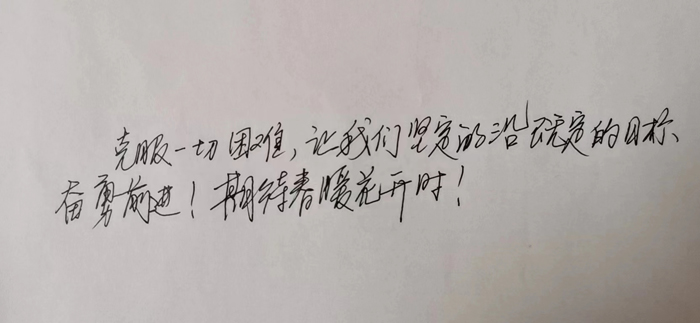 克服一切困难，让我们坚定的沿既定的目标、
奋勇前进！期待春暖花开时！